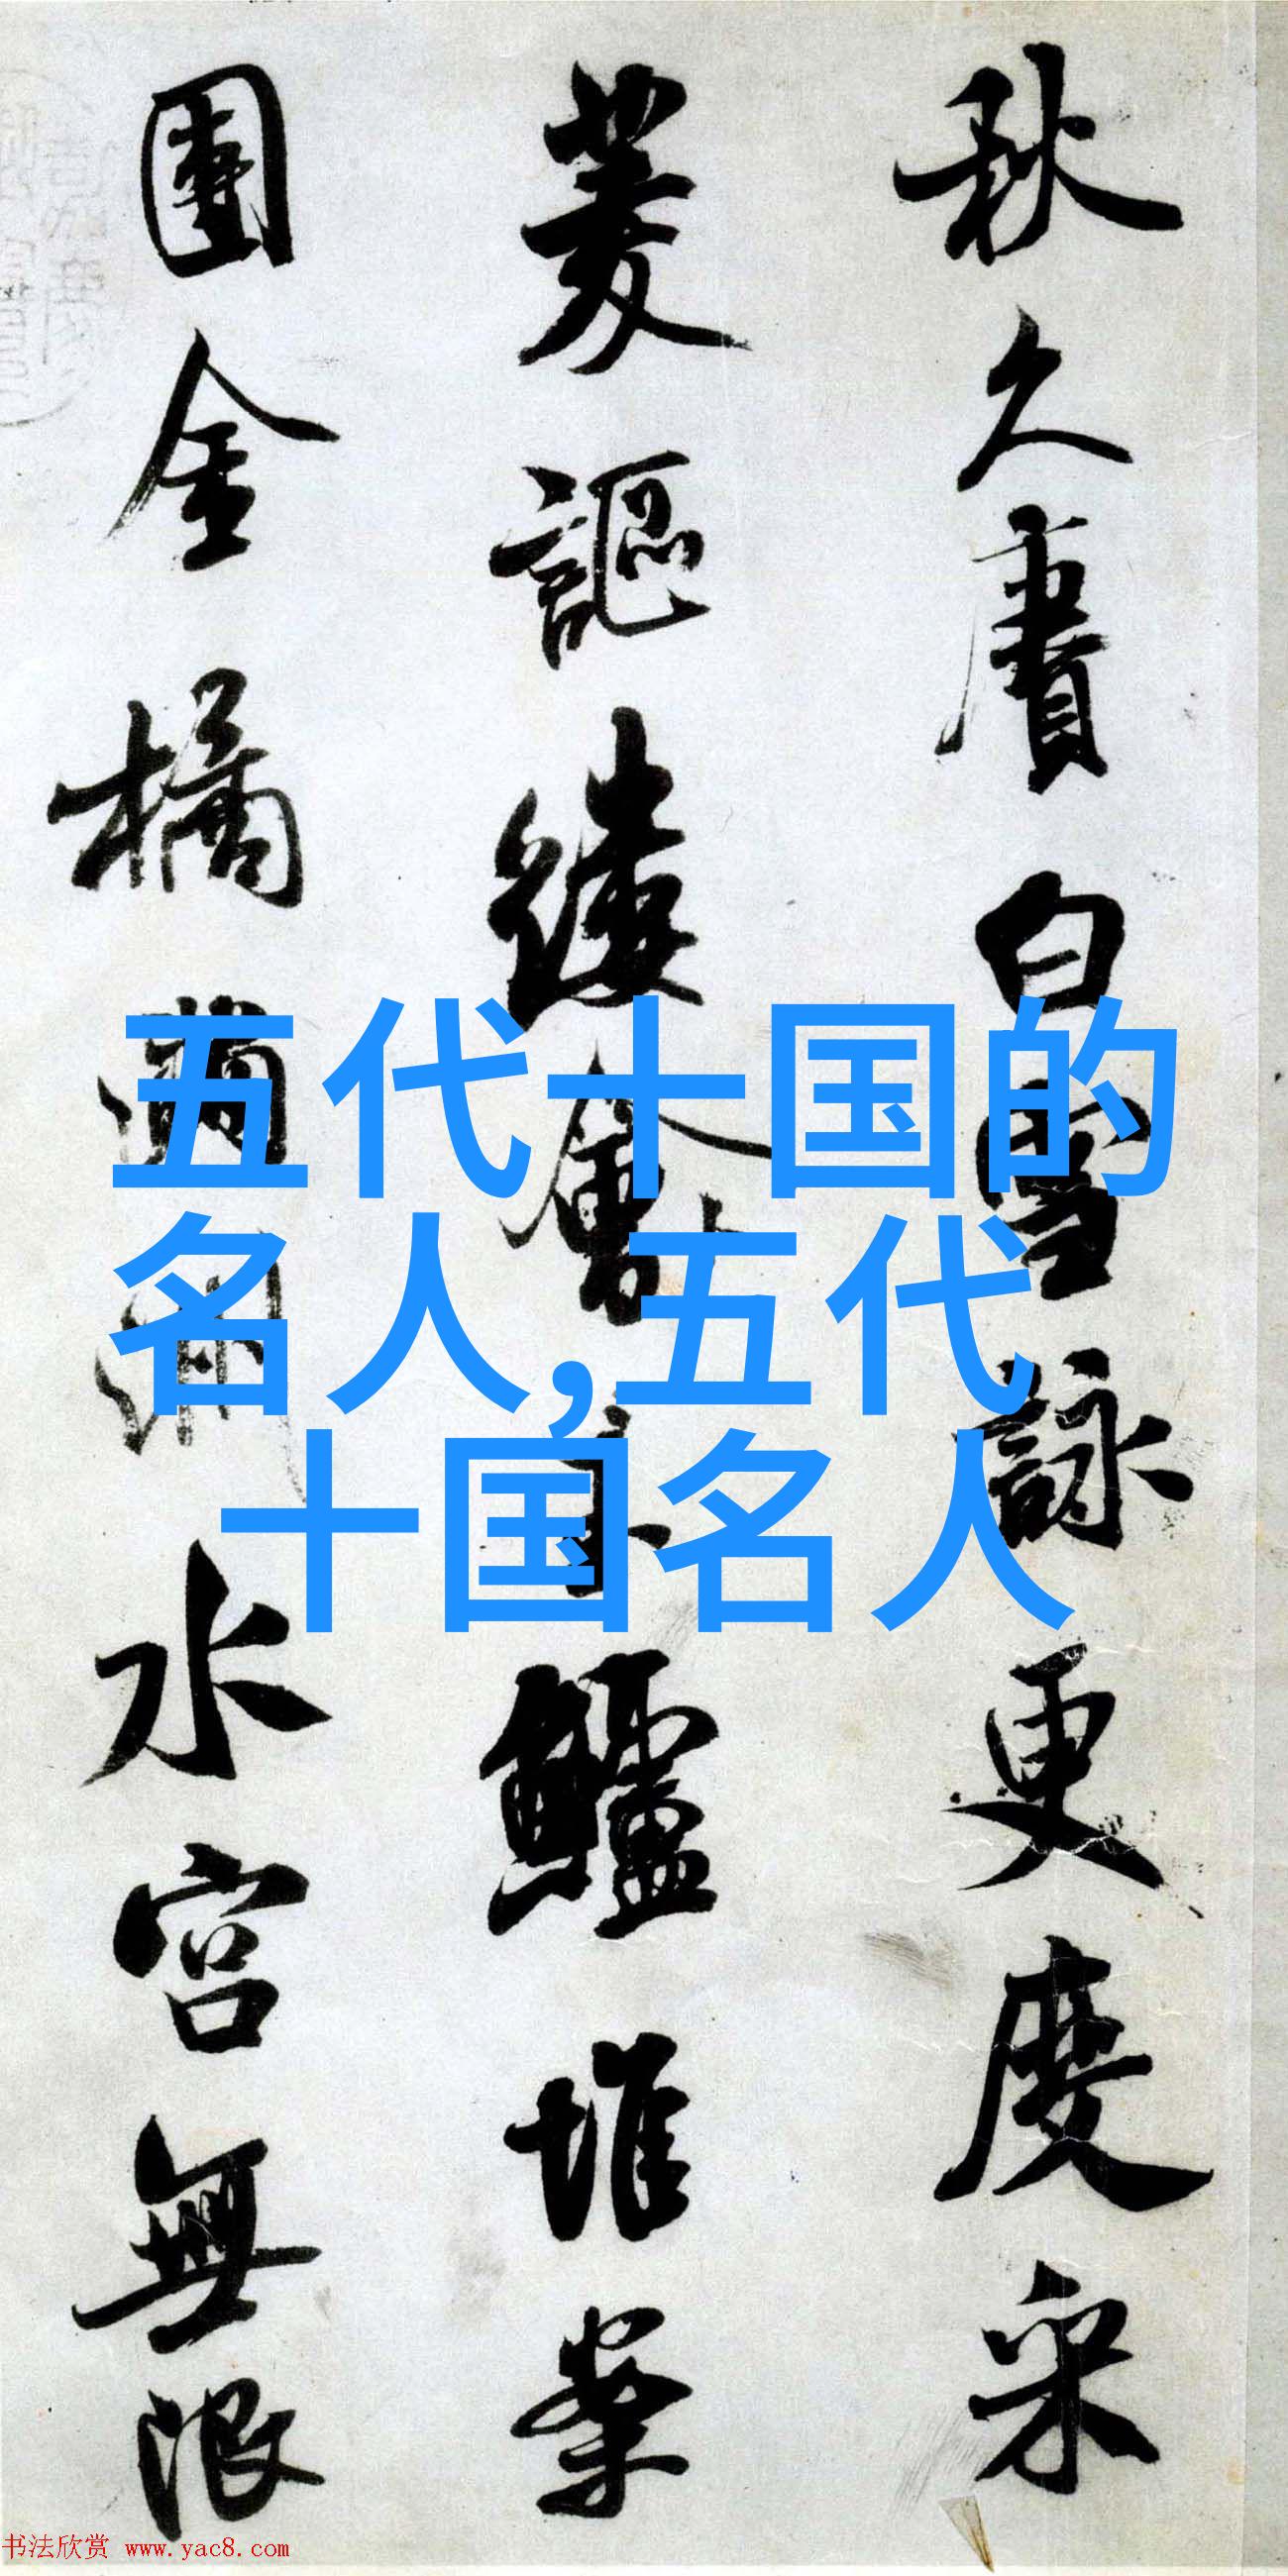 秋久賡白雪詠更度采
菱謳縷會
鱸堆案
團金橘
水宮無限
五代十国的
名人,五代
十国名人
书法欣赏 www.yac8.com